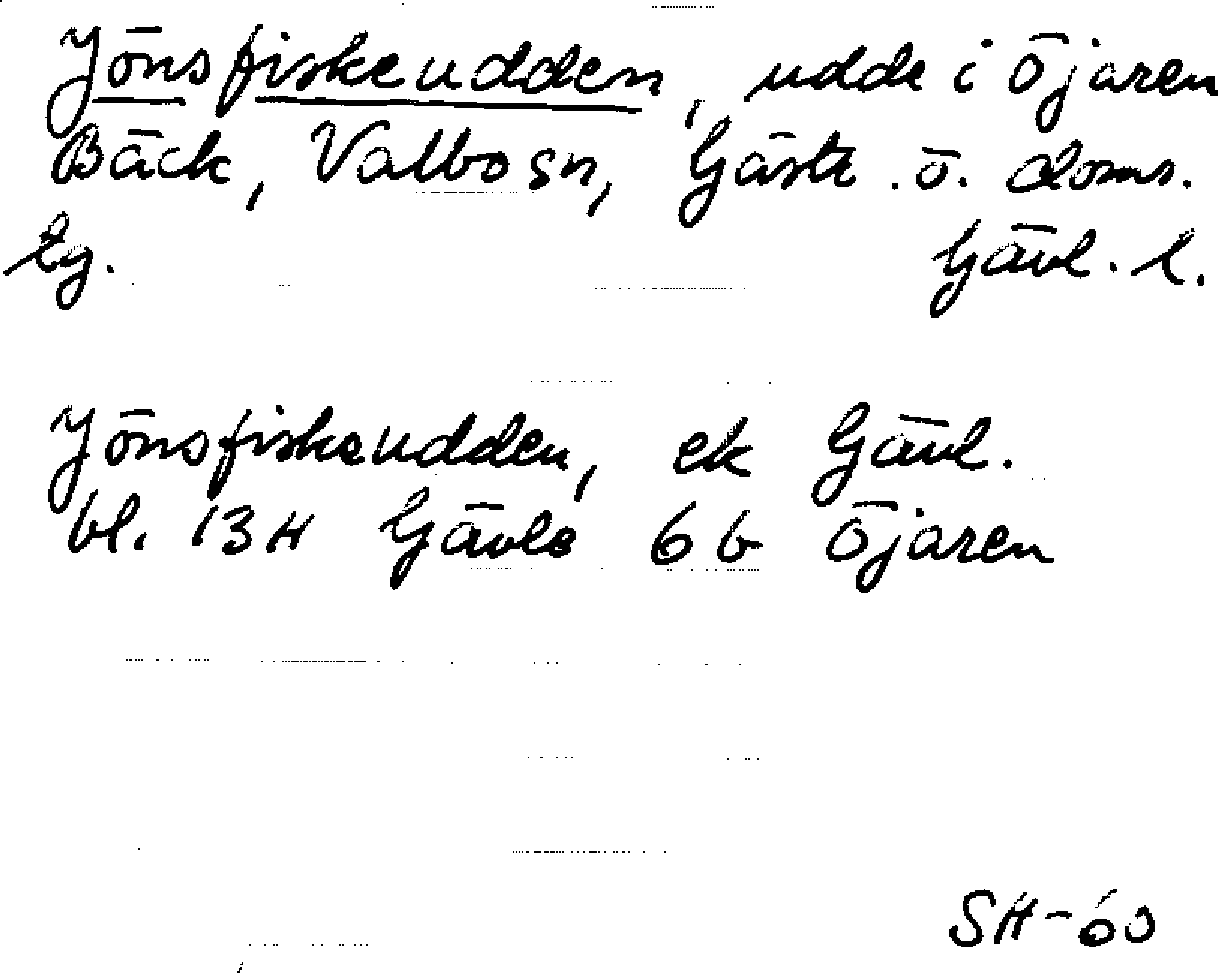 Jönsfiskeudden, udde i Öjaren
Bäck, Valbo sn, Gästr. ö. doms.
Eg. Gävl. l.
Jönsfiskeudden, ek Gävl.
bl. 13H Gävle 6b Öjaren
SH-60